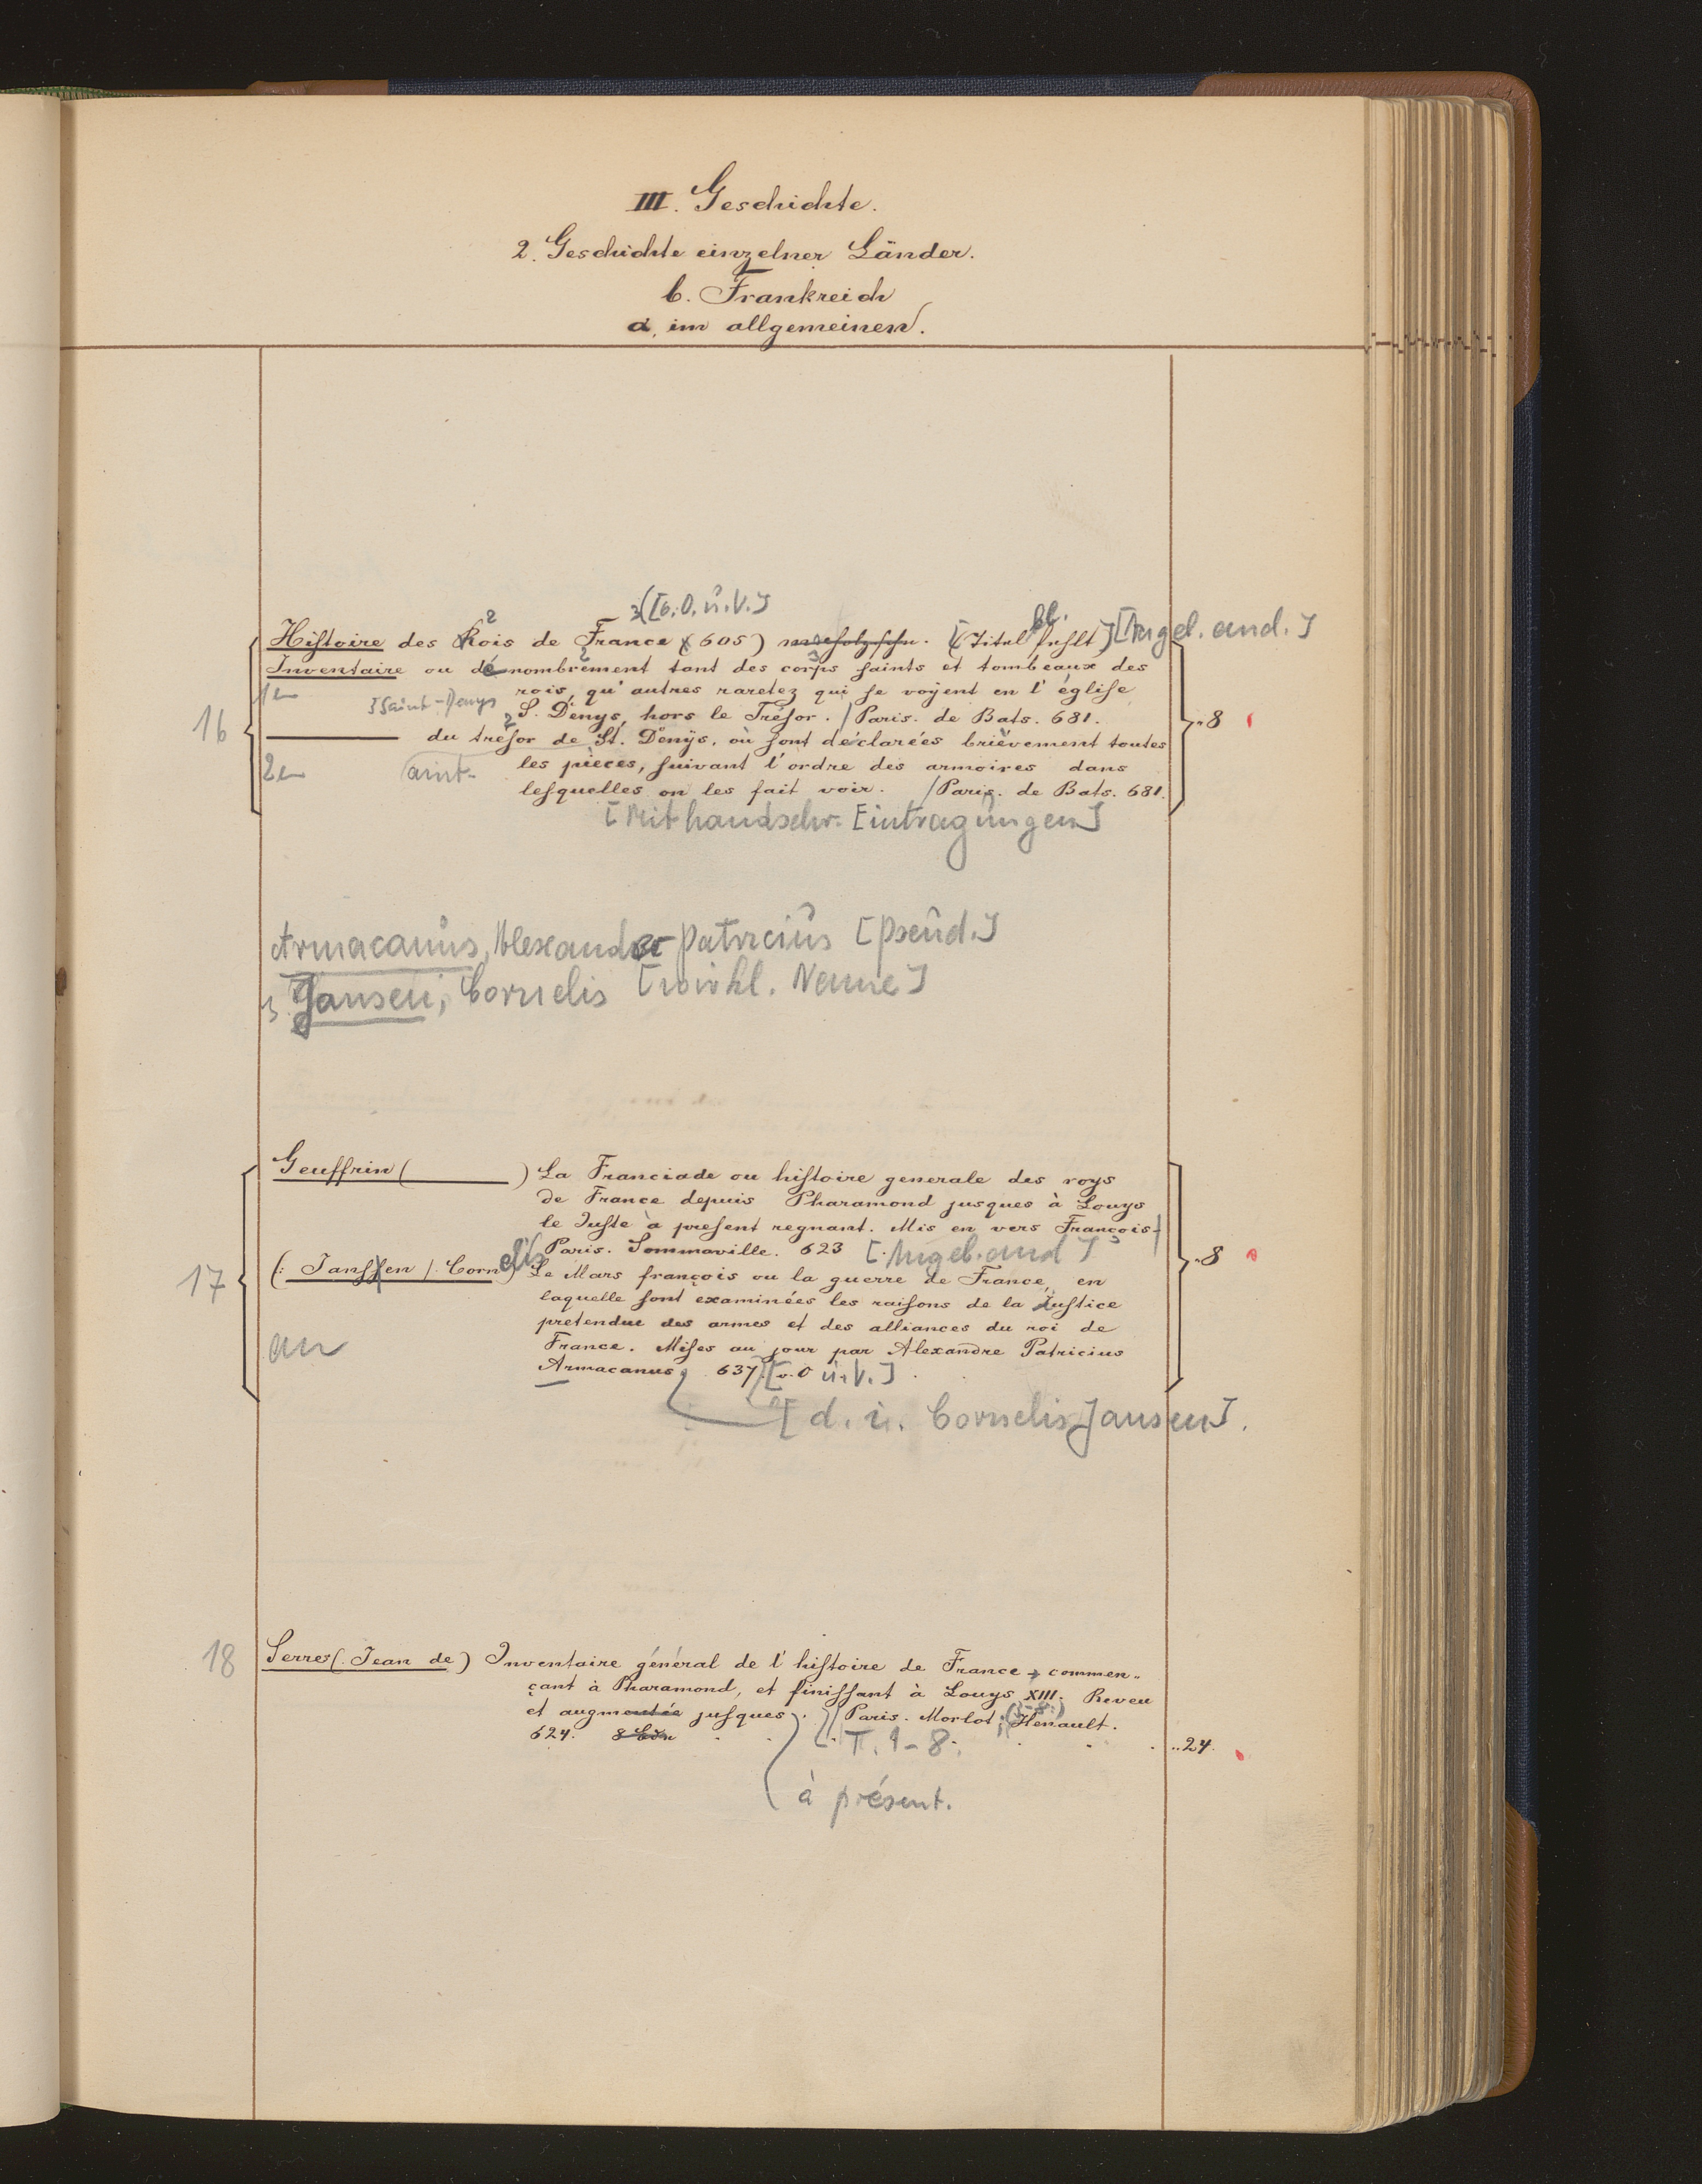 III. Geschichte.
2. Geschichte einzelner Länder.
b. Frankreich
a. im allgemeinen.
3([o. O. u. V.]
Histoire des Rois de France (605) [Titelbl. fehlt] [Angeb. and.]
Inventaire ou dénombrement tant des corps saints et tombeaux des
rois, qu'autres raretez qui se voyent en l'église
[Saint-Denys
16
S. Denys, hors le Trésor. / Paris. de Bats. 681.
..8
du trésor de St. Denys, où sont déclarées brièvement toutes
aint-
les pièces, suivant l'ordre des armoires dans
lesquelles on les fait voir. / Paris. de Bats. 681.
[Mit handschr. Eintragungen]
Armacanus, Alexander Patricius [Pseud.]
s. Jansen, Cornelis [wirkl. Name]
Geuffrin ( ) La Franciade ou histoire generale des roys
de France depuis Pharamond jusques à Louys
le Juste à present regnant. Mis en vers François.
Paris. Sommaville. 623 [Angeb. and]
17
(: Janssen /. Cornelis) Le Mars françois ou la guerre de France, en
..8
laquelle sont examinées les raisons de la Justice
pretendue des armes et des alliances du roi de
an
France. Mises au jour par Alexandre Patricius
Armacanus, 637. [o. O u. V.]
[d. i. Cornelis Jansen].
18
Serres (. Jean de) Inventaire général de l'histoire de France, commen-
çant à Pharamond, et finissant à Louys XIII. Reveu
et augmentée jusques. / Paris. Morlot; (3-8:) Henault.
624. 8 Bdn T. 1-8. ..24.
à présent.